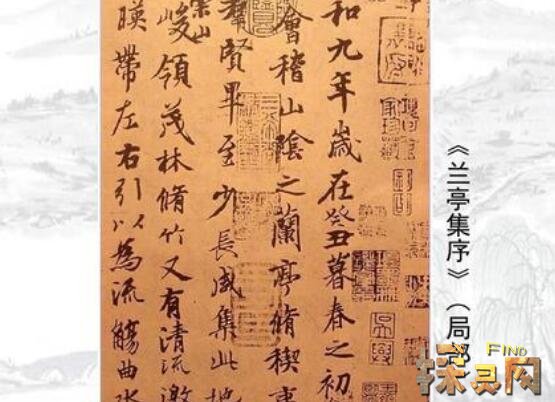 和九年歲在癸丑暮春之初
會稽山陰之蘭亭脩稧事
羣賢畢至少長咸集此地
崇山
峻領茂林脩竹又有清流激
暎帶左右引以為流觴曲水
《兰亭集序》（局部
FIND
探灵网